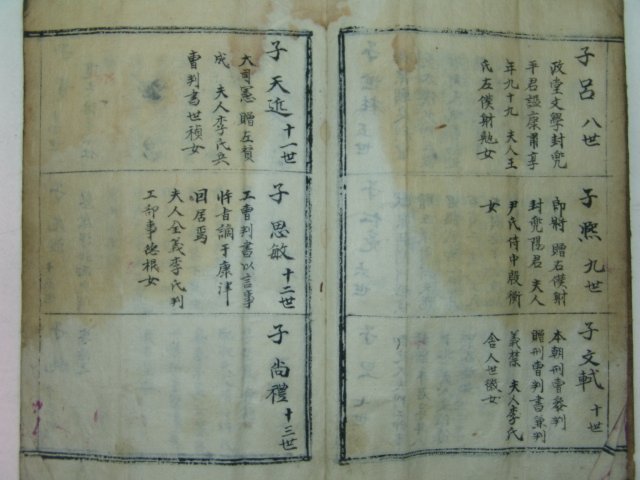 子呂 八世
政堂文學封兜
平君諡康肅享
年九十九 夫人王
氏左僕射勉女
子熙 九世
郎將 贈右僕射
封兜陽君 夫人
尹氏侍中殷衡
女
子文軾 十世
本朝刑曹參判
贈刑曹判書兼判
義禁 夫人李氏
舍人世徽女
子天近 十一世
大司憲 贈左贊
成 夫人李氏兵
曹判書世禎女
子思敏 十二世
工曹判書以言事
忤旨謫于康津
回居焉
夫人全義李氏判
工部事 女
子尚禮 十三世